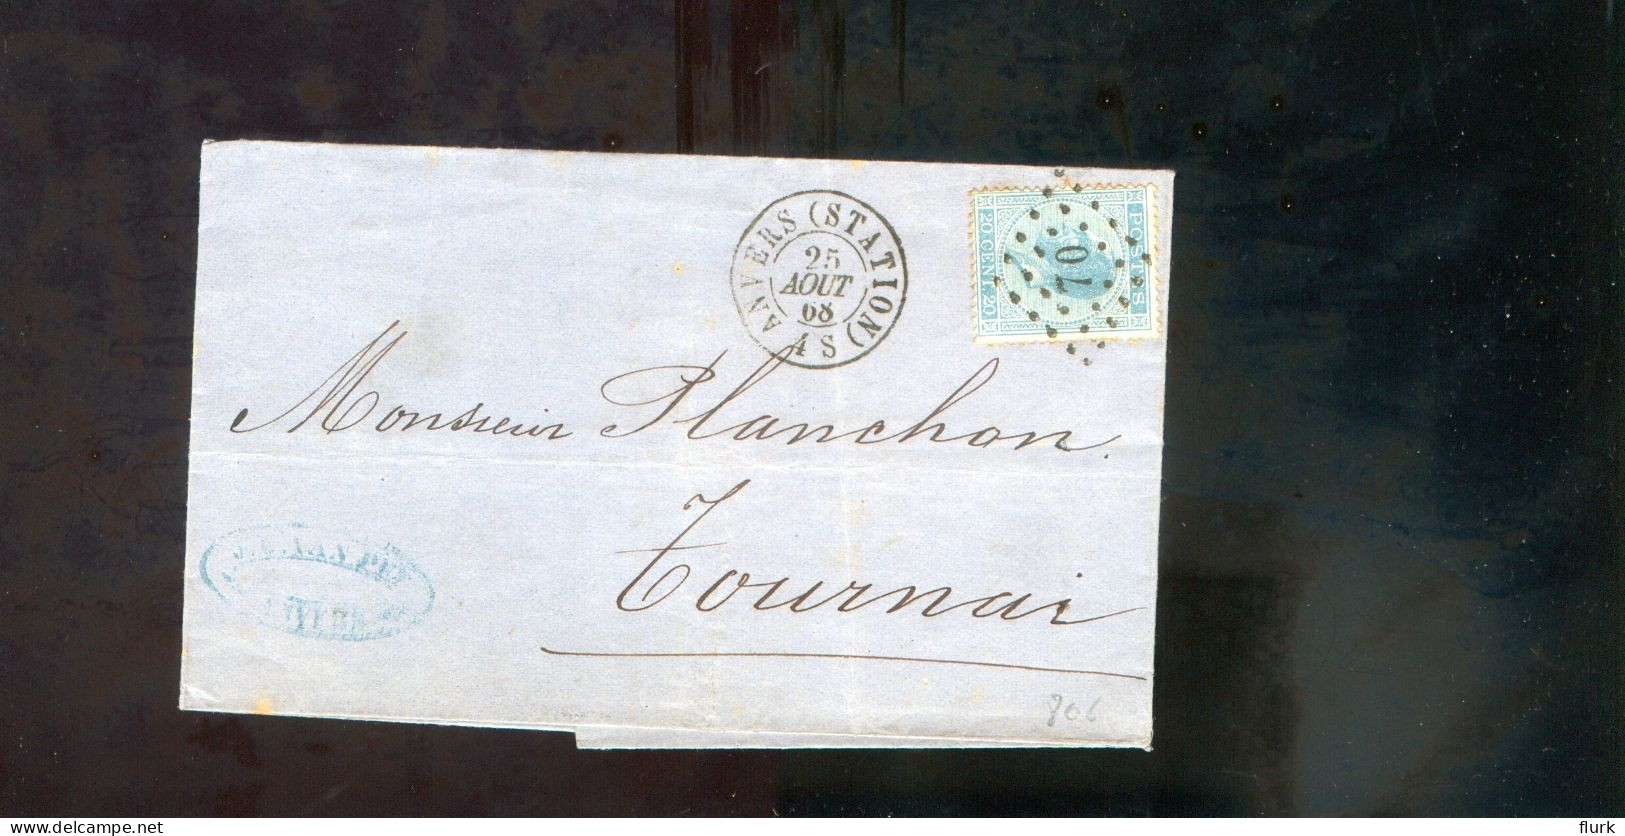 ANVERS (STATION)
25
AOUT
68
4 S
POSTES
20 CENT. 20
70
Monsieur Planchon.
Tournai
ANVERS
806
delcampe.net
flurk